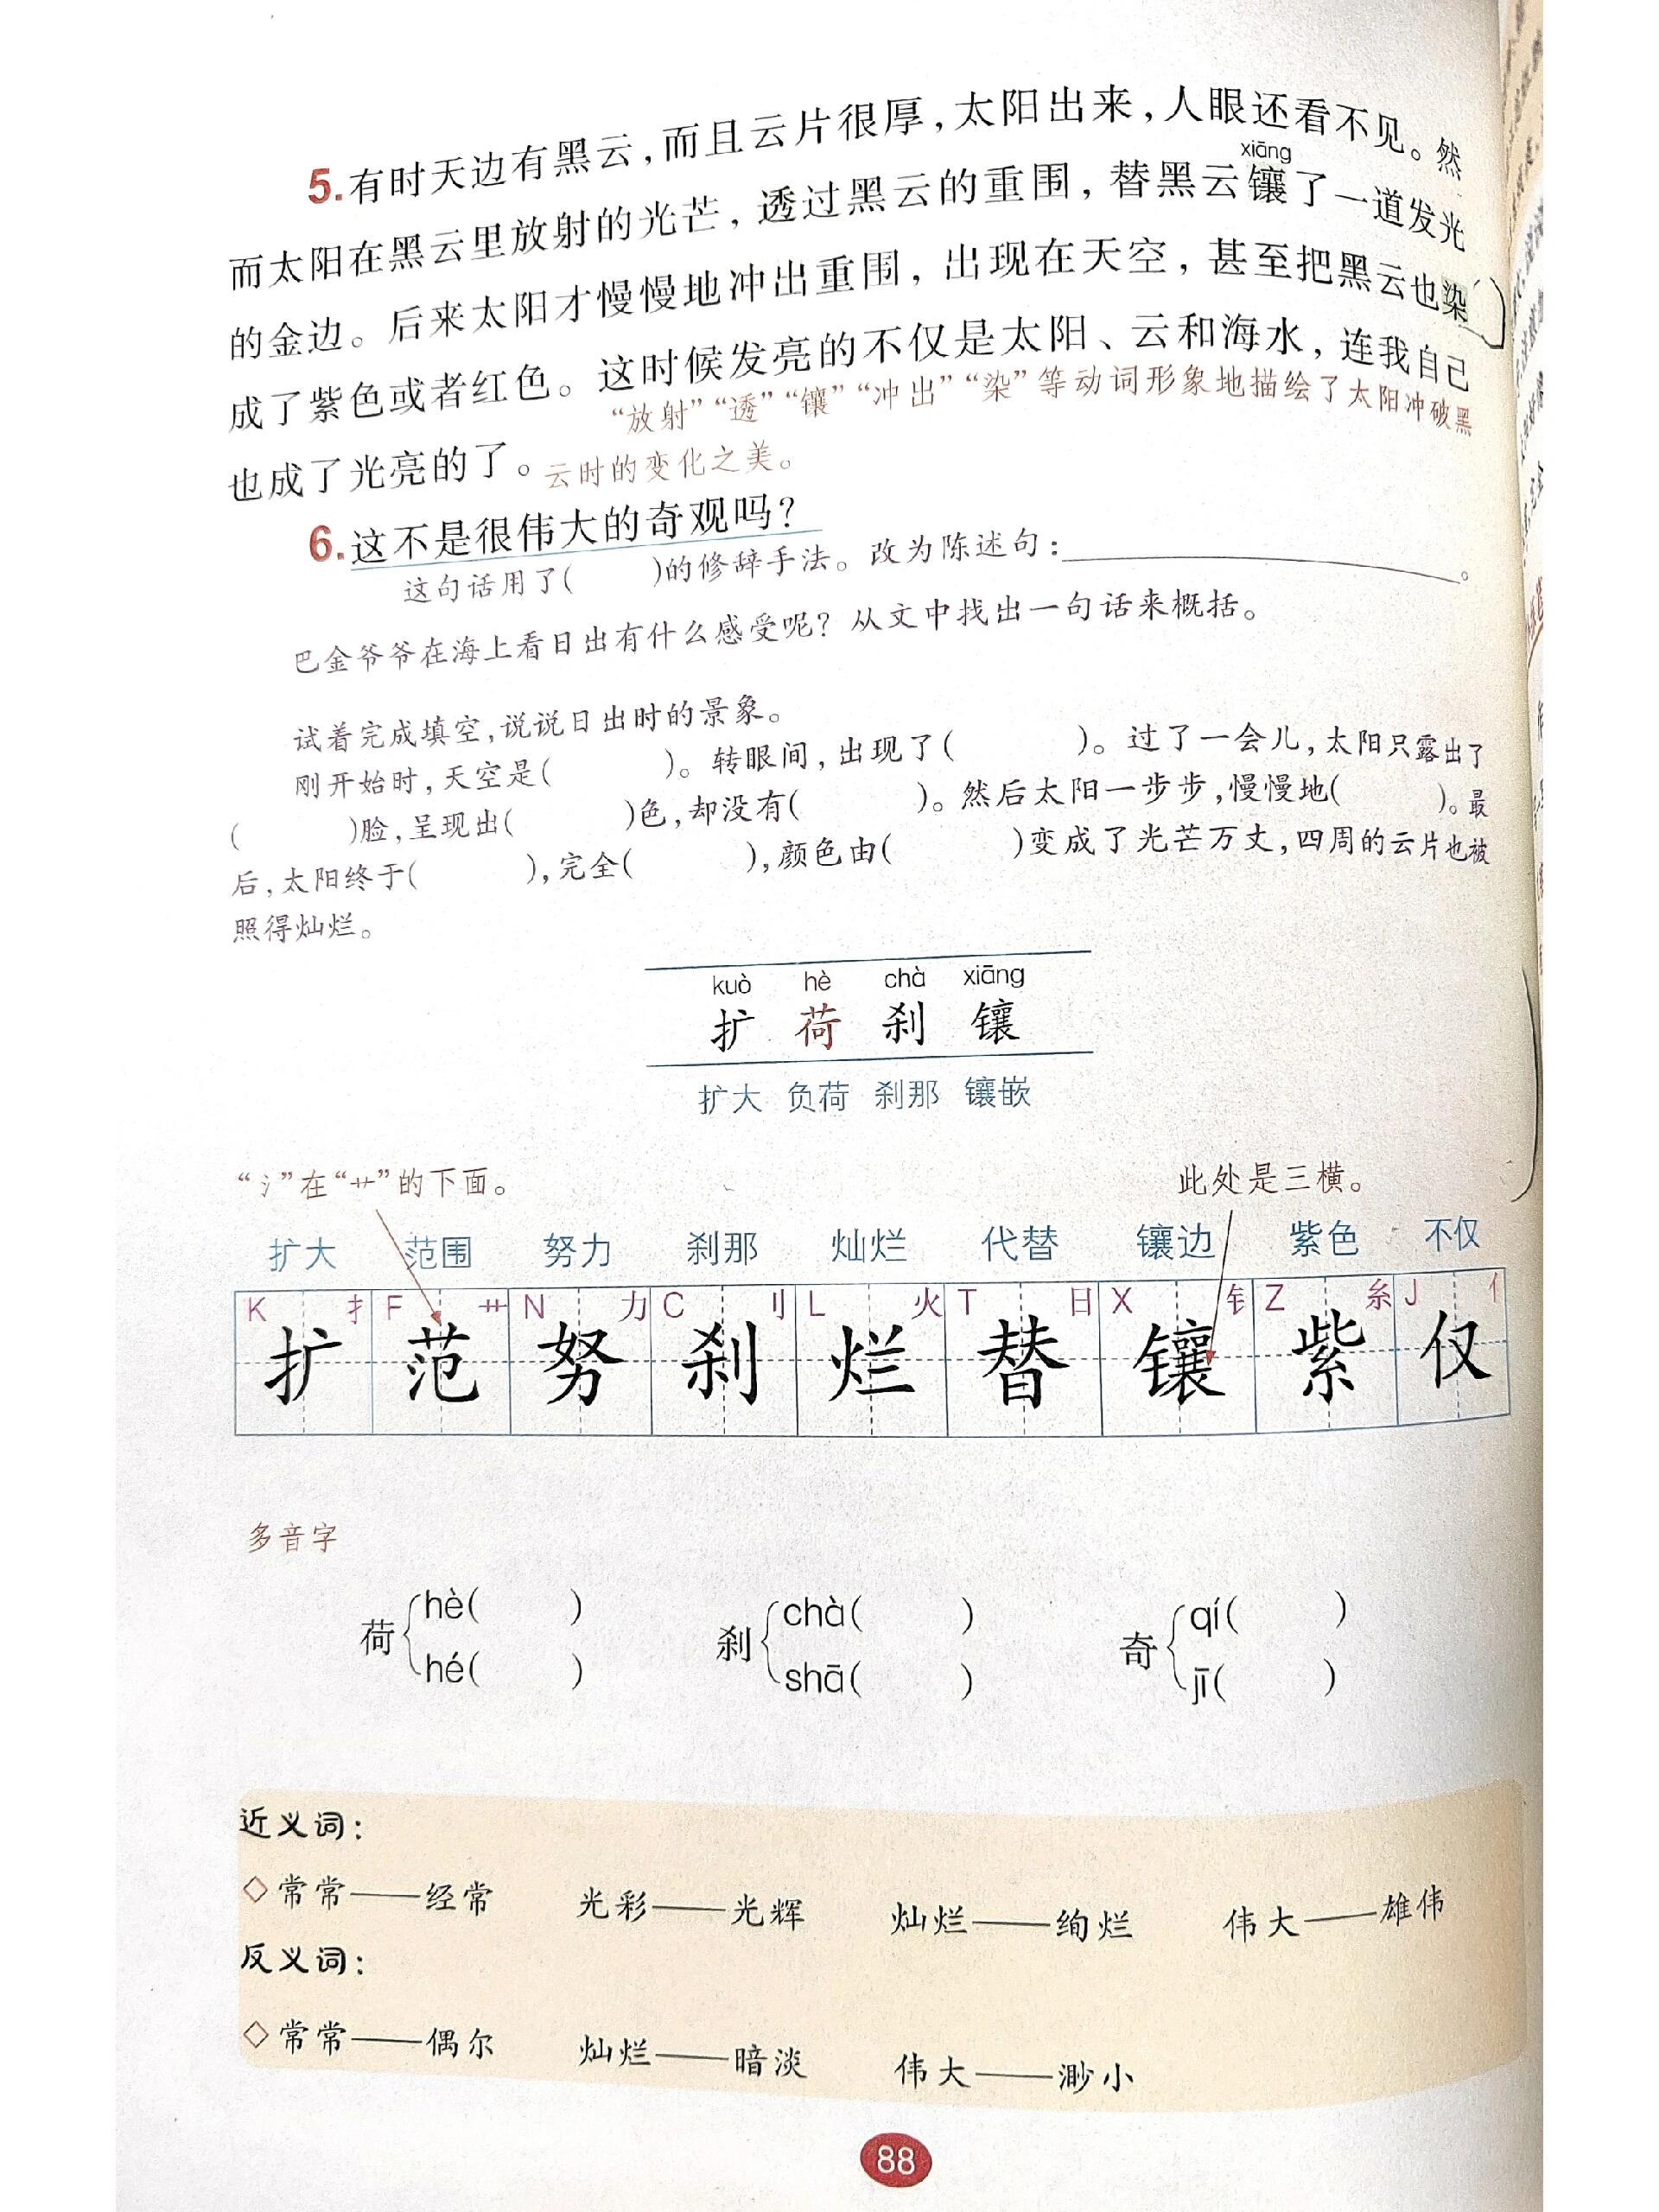 5.有时天边有黑云，而且云片很厚，太阳出来，人眼还看不见。然
xiāng
而太阳在黑云里放射的光芒，透过黑云的重围，替黑云镶了一道发光
的金边。后来太阳才慢慢地冲出重围，出现在天空，甚至把黑云也染
成了紫色或者红色。这时候发亮的不仅是太阳、云和海水，连我自己
“放射”“透”“镶”“冲出”“染”等动词形象地描绘了太阳冲破黑
也成了光亮的了。云时的变化之美。
6.这不是很伟大的奇观吗？
这句话用了(　　)的修辞手法。改为陈述句：____________。
巴金爷爷在海上看日出有什么感受呢？从文中找出一句话来概括。
试着完成填空，说说日出时的景象。
刚开始时，天空是(　　　)。转眼间，出现了(　　　)。过了一会儿，太阳只露出了
(　　　)脸，呈现出(　　　)色，却没有(　　　)。然后太阳一步步，慢慢地(　　　)。最
后，太阳终于(　　　)，完全(　　　)，颜色由(　　　)变成了光芒万丈，四周的云片也被
照得灿烂。
kuò hè chà xiāng
扩 荷 刹 镶
扩大 负荷 刹那 镶嵌
“氵”在“艹”的下面。 此处是三横。
扩大 范围 努力 刹那 灿烂 代替 镶边 紫色 不仅
K 扌 F 艹 N 力 C 刂 L 火 T 日 X 钅 Z 糸 J 亻
扩 范 努 刹 烂 替 镶 紫 仅
多音字
hè(　　) chà(　　) qí(　　)
荷 刹 奇
hé(　　) shā(　　) jī(　　)
近义词：
◇常常——经常 光彩——光辉 灿烂——绚烂 伟大——雄伟
反义词：
◇常常——偶尔 灿烂——暗淡 伟大——渺小
88